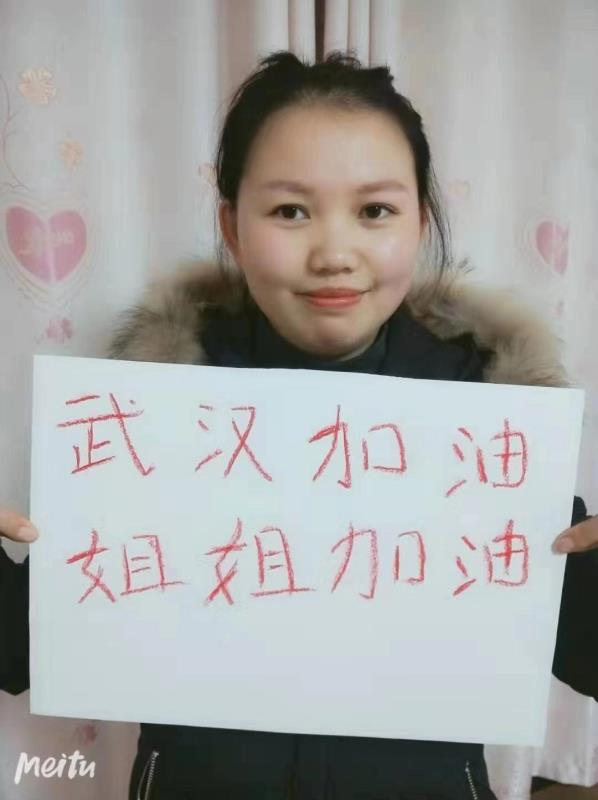 武汉加油
姐姐加油
Meitu